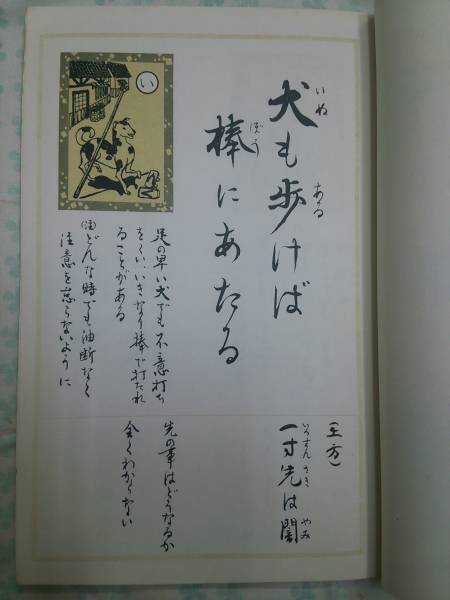 いぬ ある
犬も歩けば
ぼう
棒にあたる
い
足の早い犬でも不意打ち
をくい、いきなり棒で打たれ
ることがある
どんな時でも油断なく
注意を怠らないように
(上方)
いつすん さき やみ
一寸先は闇
先の事はどうなるか
全くわからない